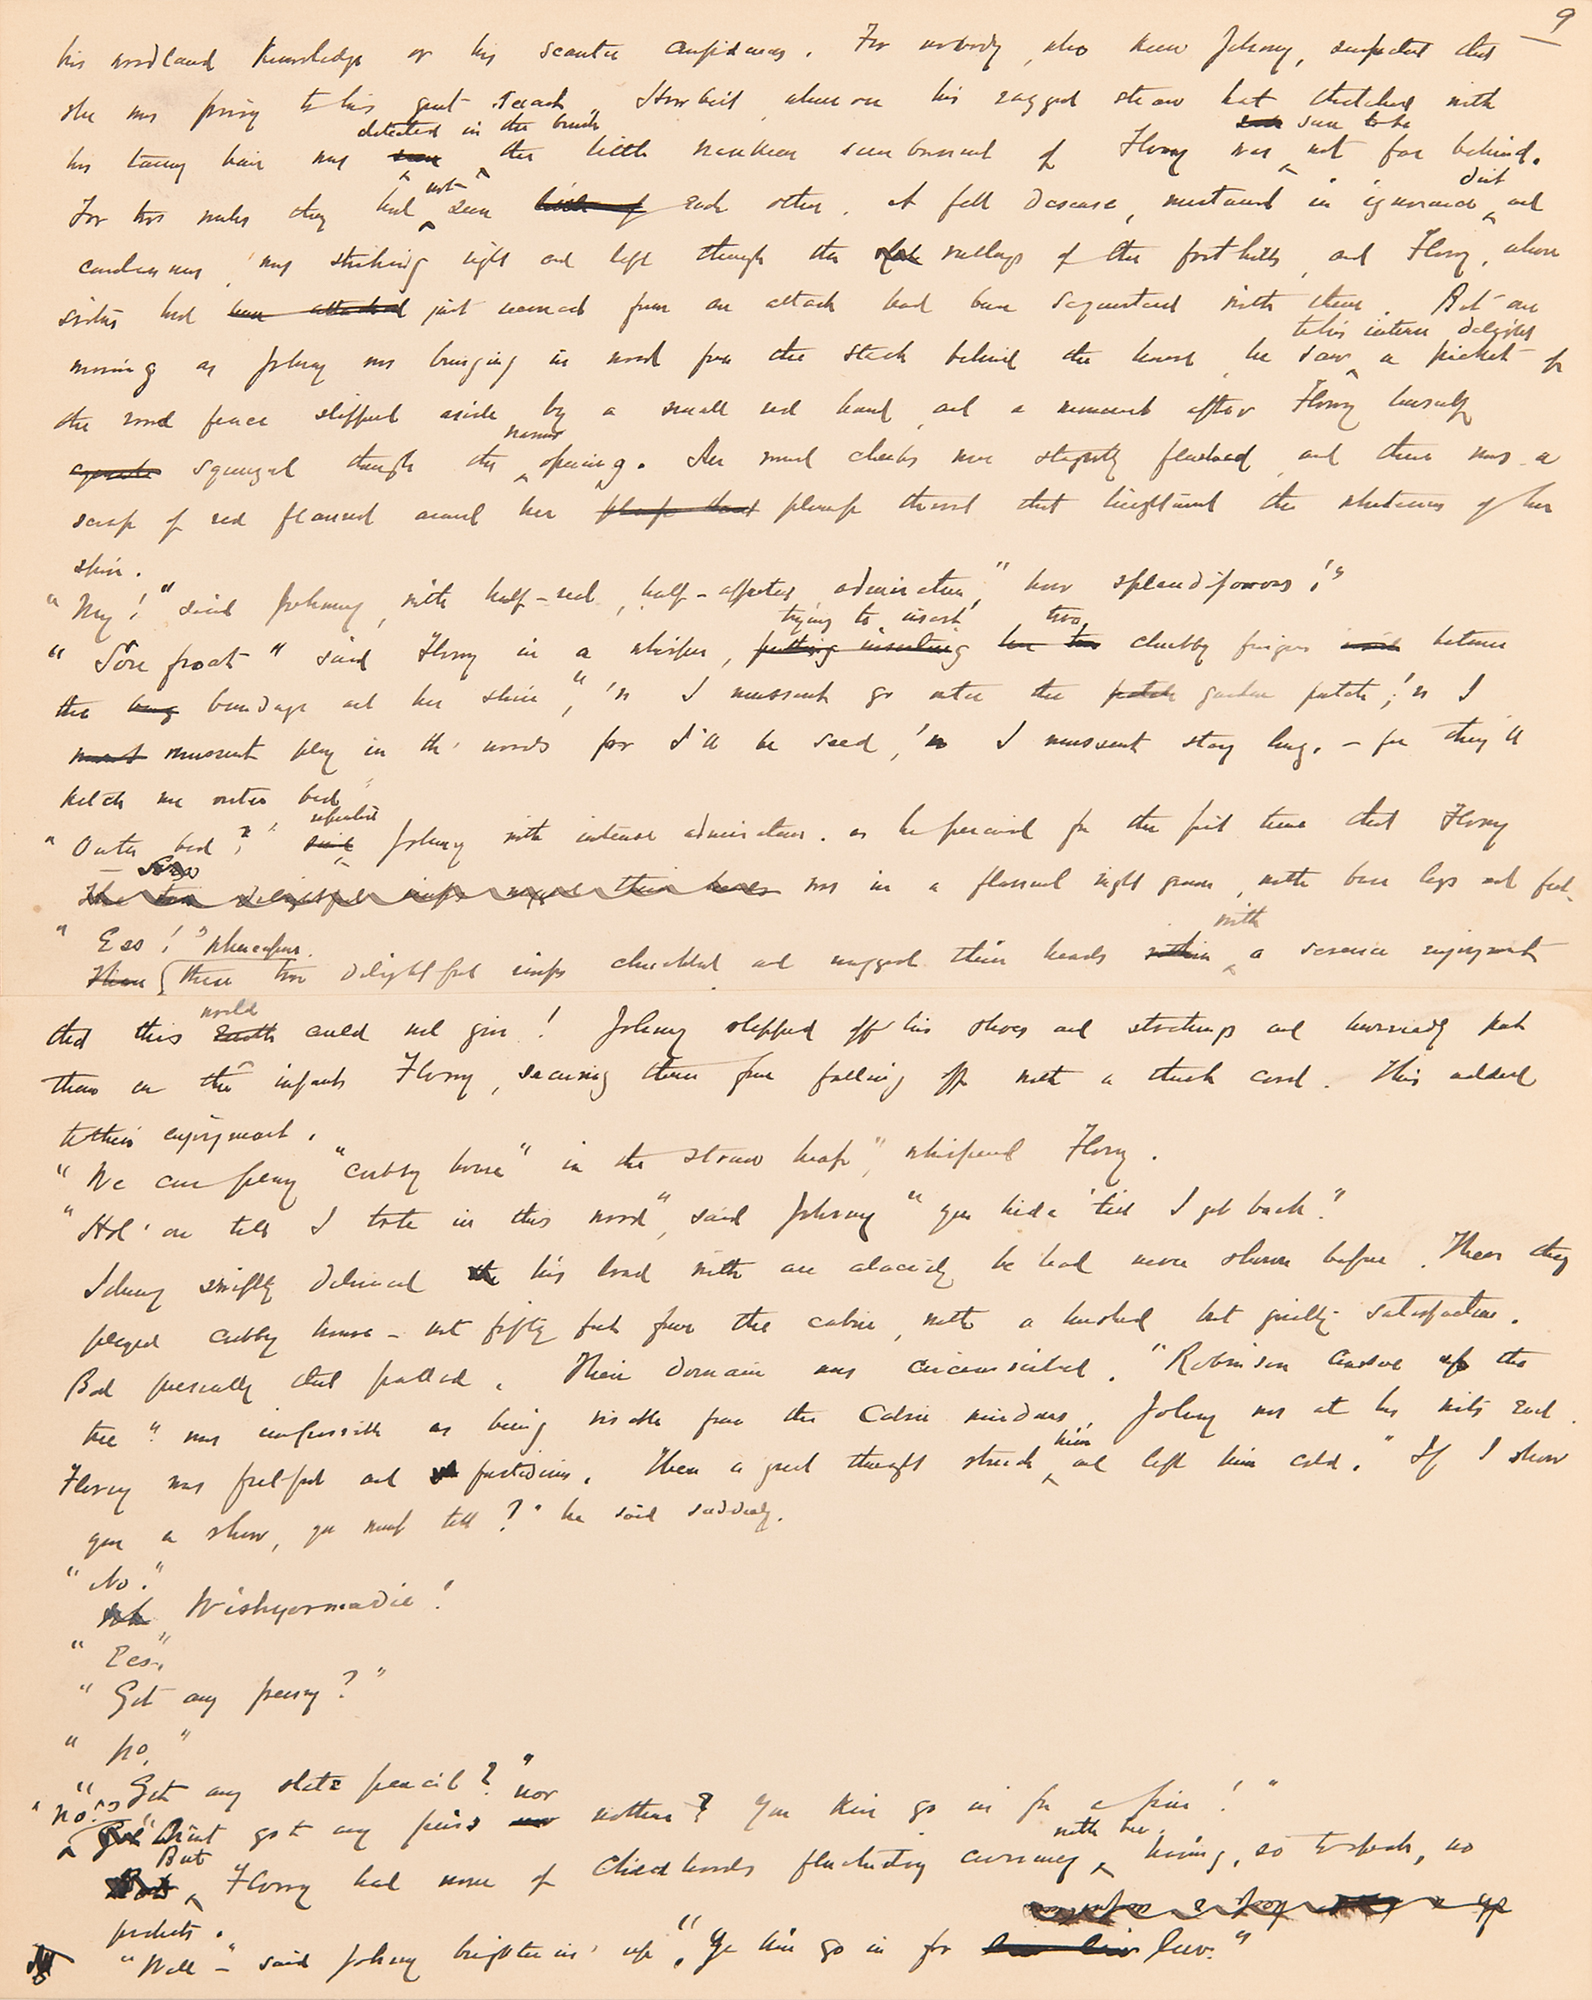 9
his woodland knowledge or his scanter confidences. For nobody, who knew Johnny, suspected that
she was privy to his great search. Howbeit, where on his ragged straw hat thatched with
detected in the brush seen to be
his tawny hair was seen the little nankeen sunbonnet of Flory was not far behind.
not dirt
For two weeks they had seen each other. A fell disease, nurtured in ignorance and
carelessness, was striking right and left through the valleys of the foothills, and Flory, whose
sister had been attacked just recovered from an attack had been sequestered with them. But one
to his intense delight
morning as Johnny was bringing in wood from the stack behind the house, he saw a picket of
the wood fence slipped aside by a small red hand, and a moment after Flory herself
narrow
squeezed through the opening. Her round cheeks were slightly flushed and there was a
scrap of red flannel around her plump throat that heightened the whiteness of her
skin.
"My!" said Johnny, with half-real, half-affected admiration, "how splendiforous!"
trying to insert two
"Sore froat" said Flory in a whisper, putting inserting her two chubby fingers between
the bandage and her chin, "'n I mussent go outer the patch garden patch, 'n I
mussent play in th' woods for I'll be seed, 'n I mussent stay long. - for they'll
ketch me outer bed."
repeated
"Outer bed?" said Johnny with intense admiration. as he perceived for the first time that Flory
The two delightful imps wagged their heads was in a flannel night gown, with bare legs and feet.
"Ess!" Whereupon
with
these two delightful imps chuckled and wagged their heads within a serene enjoyment
world
that this earth could not give! Johnny slipped off his shoes and stockings and hurriedly put
them on the infant Flory, securing them from falling off with a thick cord. This added
to their enjoyment.
"We can play "cubby house" in the straw heap," whispered Flory.
"Hol' on till I tote in this wood", said Johnny "you hide 'till I get back."
Johnny swiftly delivered his load with an alacrity he had never shown before. Then they
played cubby house - not fifty feet from the cabin, with a hushed but guilty satisfaction.
But presently that palled. Their domain was circumscribed. "Robinson Crusoe up the
tree" was impossible as being visible from the Cabin windows. Johnny was at his wits end.
him
Flory was fretful and fastidious. Then a great thought struck and left him cold. "If I show
you a show, you won't tell?" he said suddenly.
"No."
Wishyermadie!
"Ees."
"Got any penny?"
"No."
"Got any slate pencil?"
"No." nor
"Aint got any pins nor nothin? You kin go in for a pin!"
But with her
Flory had none of childhoods fluctuating currency having, so to speak, no
pockets.
"Well -" said Johnny brightenin' up, "Ye kin go in for luv."